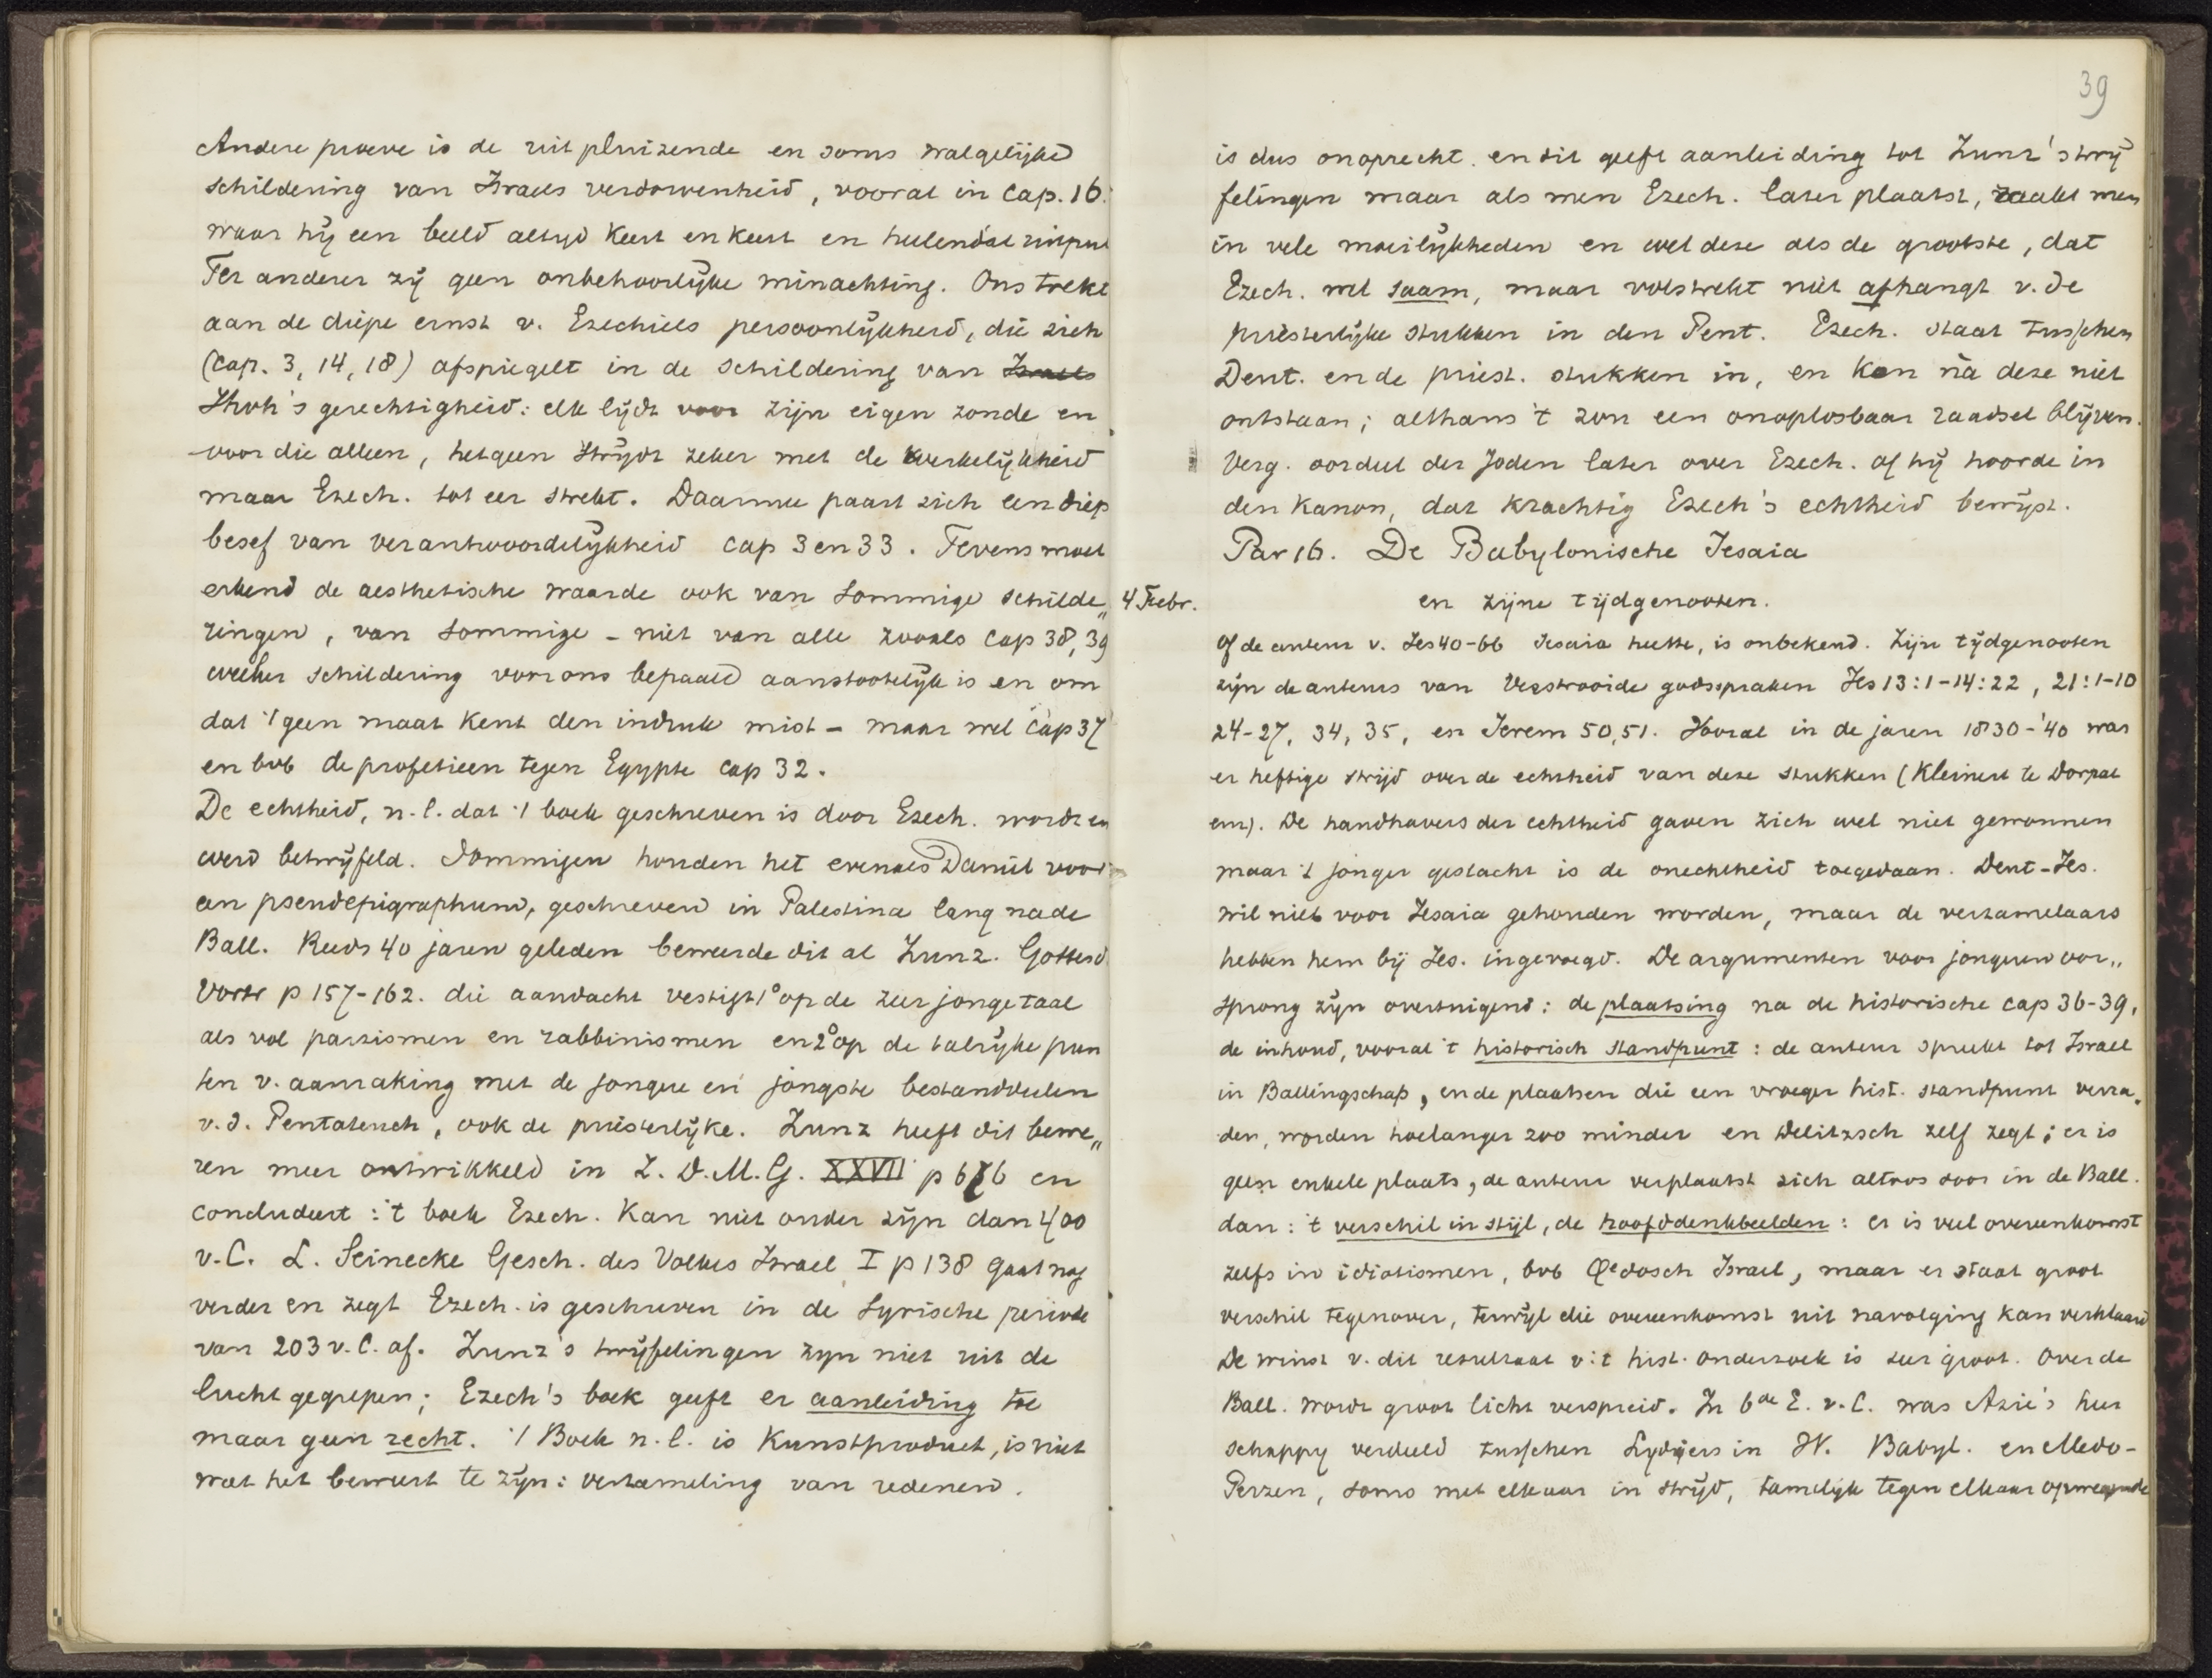 Andere proeve is de uitpluizende en soms walgelijke
schildering van Israels verdorvenheid, vooral in cap. 16.
waar hij een beeld altijd keert en keert en heelendal uitput
Ter anderer zij geen onbehoorlijke minachting. Ons trekt
aan de diepe ernst v. Ezechiels persoonlijkheid, die zich
(cap. 3, 14, 18) afspiegelt in de schildering van Israels
Jhvh's gerechtigheid: elk lijdt voor zijn eigen zonde en
voor die alleen, hetgeen strijdt zeker met de werkelijkheid
maar Ezech. tot eer strekt. Daarmee paart zich een diep
besef van verantwoordelijkheid cap 3 en 33. Tevens moet
erkend de aesthetische waarde ook van sommige schilde„
ringen, van sommige - niet van alle zooals cap 38, 39
welker schildering voor ons bepaald aanstootelijk is en om
dat 't geen maat kent den indruk mist - maar wel cap 37
en bvb de profetieen tegen Egypte cap 32.
De echtheid, n.l. dat 't boek geschreven is door Ezech. wordt en
werd betwijfeld. Sommigen houden het evenals Daniel voor
een pseudepigraphum, geschreven in Palestina lang na de
Ball. Reeds 40 jaren geleden beweerde dit al Zunz. Gottesd.
Vortr p 157-162. die aandacht vestigt 1° op de zeer jonge taal
als vol parzismen en rabbinismen en 2° op de talrijke pun
ten v. aanraking met de jongere en jongste bestanddeelen
v.d. Pentateuch, ook de priesterlijke. Zunz heeft dit bewe„
ren meer ontwikkeld in Z.D.M.G. XXVII p 676 en
concludeert: 't boek Ezech. kan niet ouder zijn dan 400
v.C. L. Seinecke Gesch. des Volkes Israel I p 138 gaat nog
verder en zegt Ezech. is geschreven in de Syrische periode
van 203 v.C. af. Zunz's twijfelingen zijn niet uit de
lucht gegrepen; Ezech's boek geeft er aanleiding toe
maar geen recht. 't Boek n.l. is kunstproduct, is niet
wat het beweert te zijn: verzameling van redenen.
39
is dus onoprecht. en dit geeft aanleiding tot Zunz's twij
felingen maar als men Ezech. later plaatst, raakt men
in vele moeilijkheden en wel deze als de grootste, dat
Ezech. wel saam, maar volstrekt niet afhangt v. de
priesterlijke stukken in den Pent. Ezech. staat tusschen
Deut. en de priest. stukken in, en kan nà deze niet
ontstaan; althans 't zou een onoplosbaar raadsel blijven.
Verg. oordeel der Joden later over Ezech. of hij hoorde in
den Kanon, dat krachtig Ezech's echtheid bewijst.
Par 16. De Babylonische Jesaia
4 Febr. en zijne tijdgenooten.
Of de auteur v. Jes 40-66 Jesaia heette, is onbekend. Zijn tijdgenooten
zijn de auteurs van Verstrooide godsspraken Jes 13:1-14:22, 21:1-10
24-27, 34, 35, en Jerem 50,51. Vooral in de jaren 1830-'40 was
er heftige strijd over de echtheid van deze stukken (Kleinert te Dorpat
enz). De handhavers der echtheid gaven zich wel niet gewonnen
maar 't jonger geslacht is de onechtheid toegedaan. Deut-Jes.
wil niet voor Jesaia gehouden worden, maar de verzamelaars
hebben hem bij Jes. ingevoegd. De argumenten voor jongeren oor„
sprong zijn overtuigend: de plaatsing na de historische cap 36-39,
de inhoud, vooral 't historisch standpunt: de auteur spreekt tot Israel
in Ballingschap, en de plaatsen die een vroeger hist. standpunt verra„
den, worden hoelanger zoo minder en Delitzsch zelf zegt: er is
geen enkele plaats, de auteur verplaatst zich altoos door in de Ball.
dan: 't verschil in stijl, de hoofddenkbeelden: er is veel overeenkomst
zelfs in idiotismen, bvb Qedosch Israel, maar er staat groot
verschil tegenover, terwijl die overeenkomst uit navolging kan verklaard
De winst v. dit resultaat v. 't hist. onderzoek is zeer groot. Over de
Ball. wordt groot licht verspreid. In 6de E. v.C. was Azie's heer
schappij verdeeld tusschen Lydiers in W. Babyl. en Medo-
Perzen, soms met elkaar in strijd, tamelijk tegen elkaar opwegende